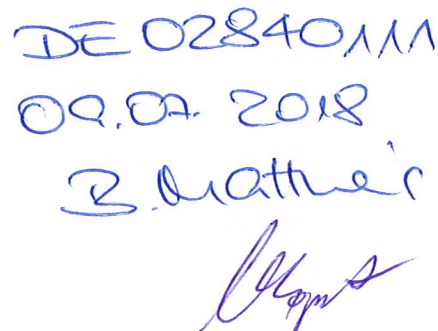 DE 02840111
09.07. 2018
B. Matthes